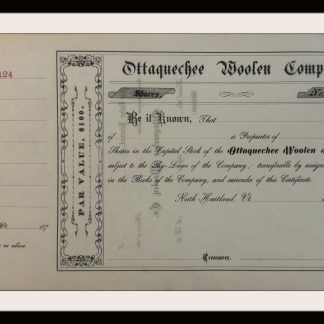 124
Ottaquechee Woolen Comp
Shares
No.
PAR VALUE, $100.
Be it Known, That
of is Proprietor of
Shares in the Capital Stock of the Ottaquechee Woolen
subject to the By-Laws of the Company; transferable by assign
in the Books of the Company, and surrender of this Certificate.
North Hartland, Vt.
187
as above.
Treasurer.